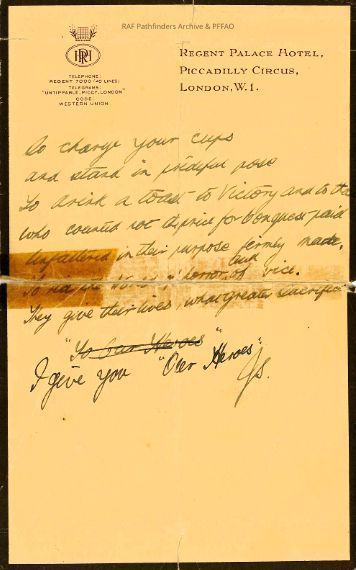 RAF Pathfinders Archive & PFFAO
RPH
REGENT PALACE HOTEL,
PICCADILLY CIRCUS,
LONDON, W.1.
TELEPHONE:
REGENT 7000 (40 LINES)
TELEGRAMS:
"UNTIPPABLE, PICCY, LONDON"
CODE:
WESTERN UNION.
So charge your cups
and stand in prideful pose
To drink a toast to Victory and to the
who counted not the price for Conquest paid
Unfaltered in their purpose firmly made.
To rid the world of horror, and vice.
They give their lives, what greater Sacrifice
"To Our Heroes"
I give you "Our Heroes"